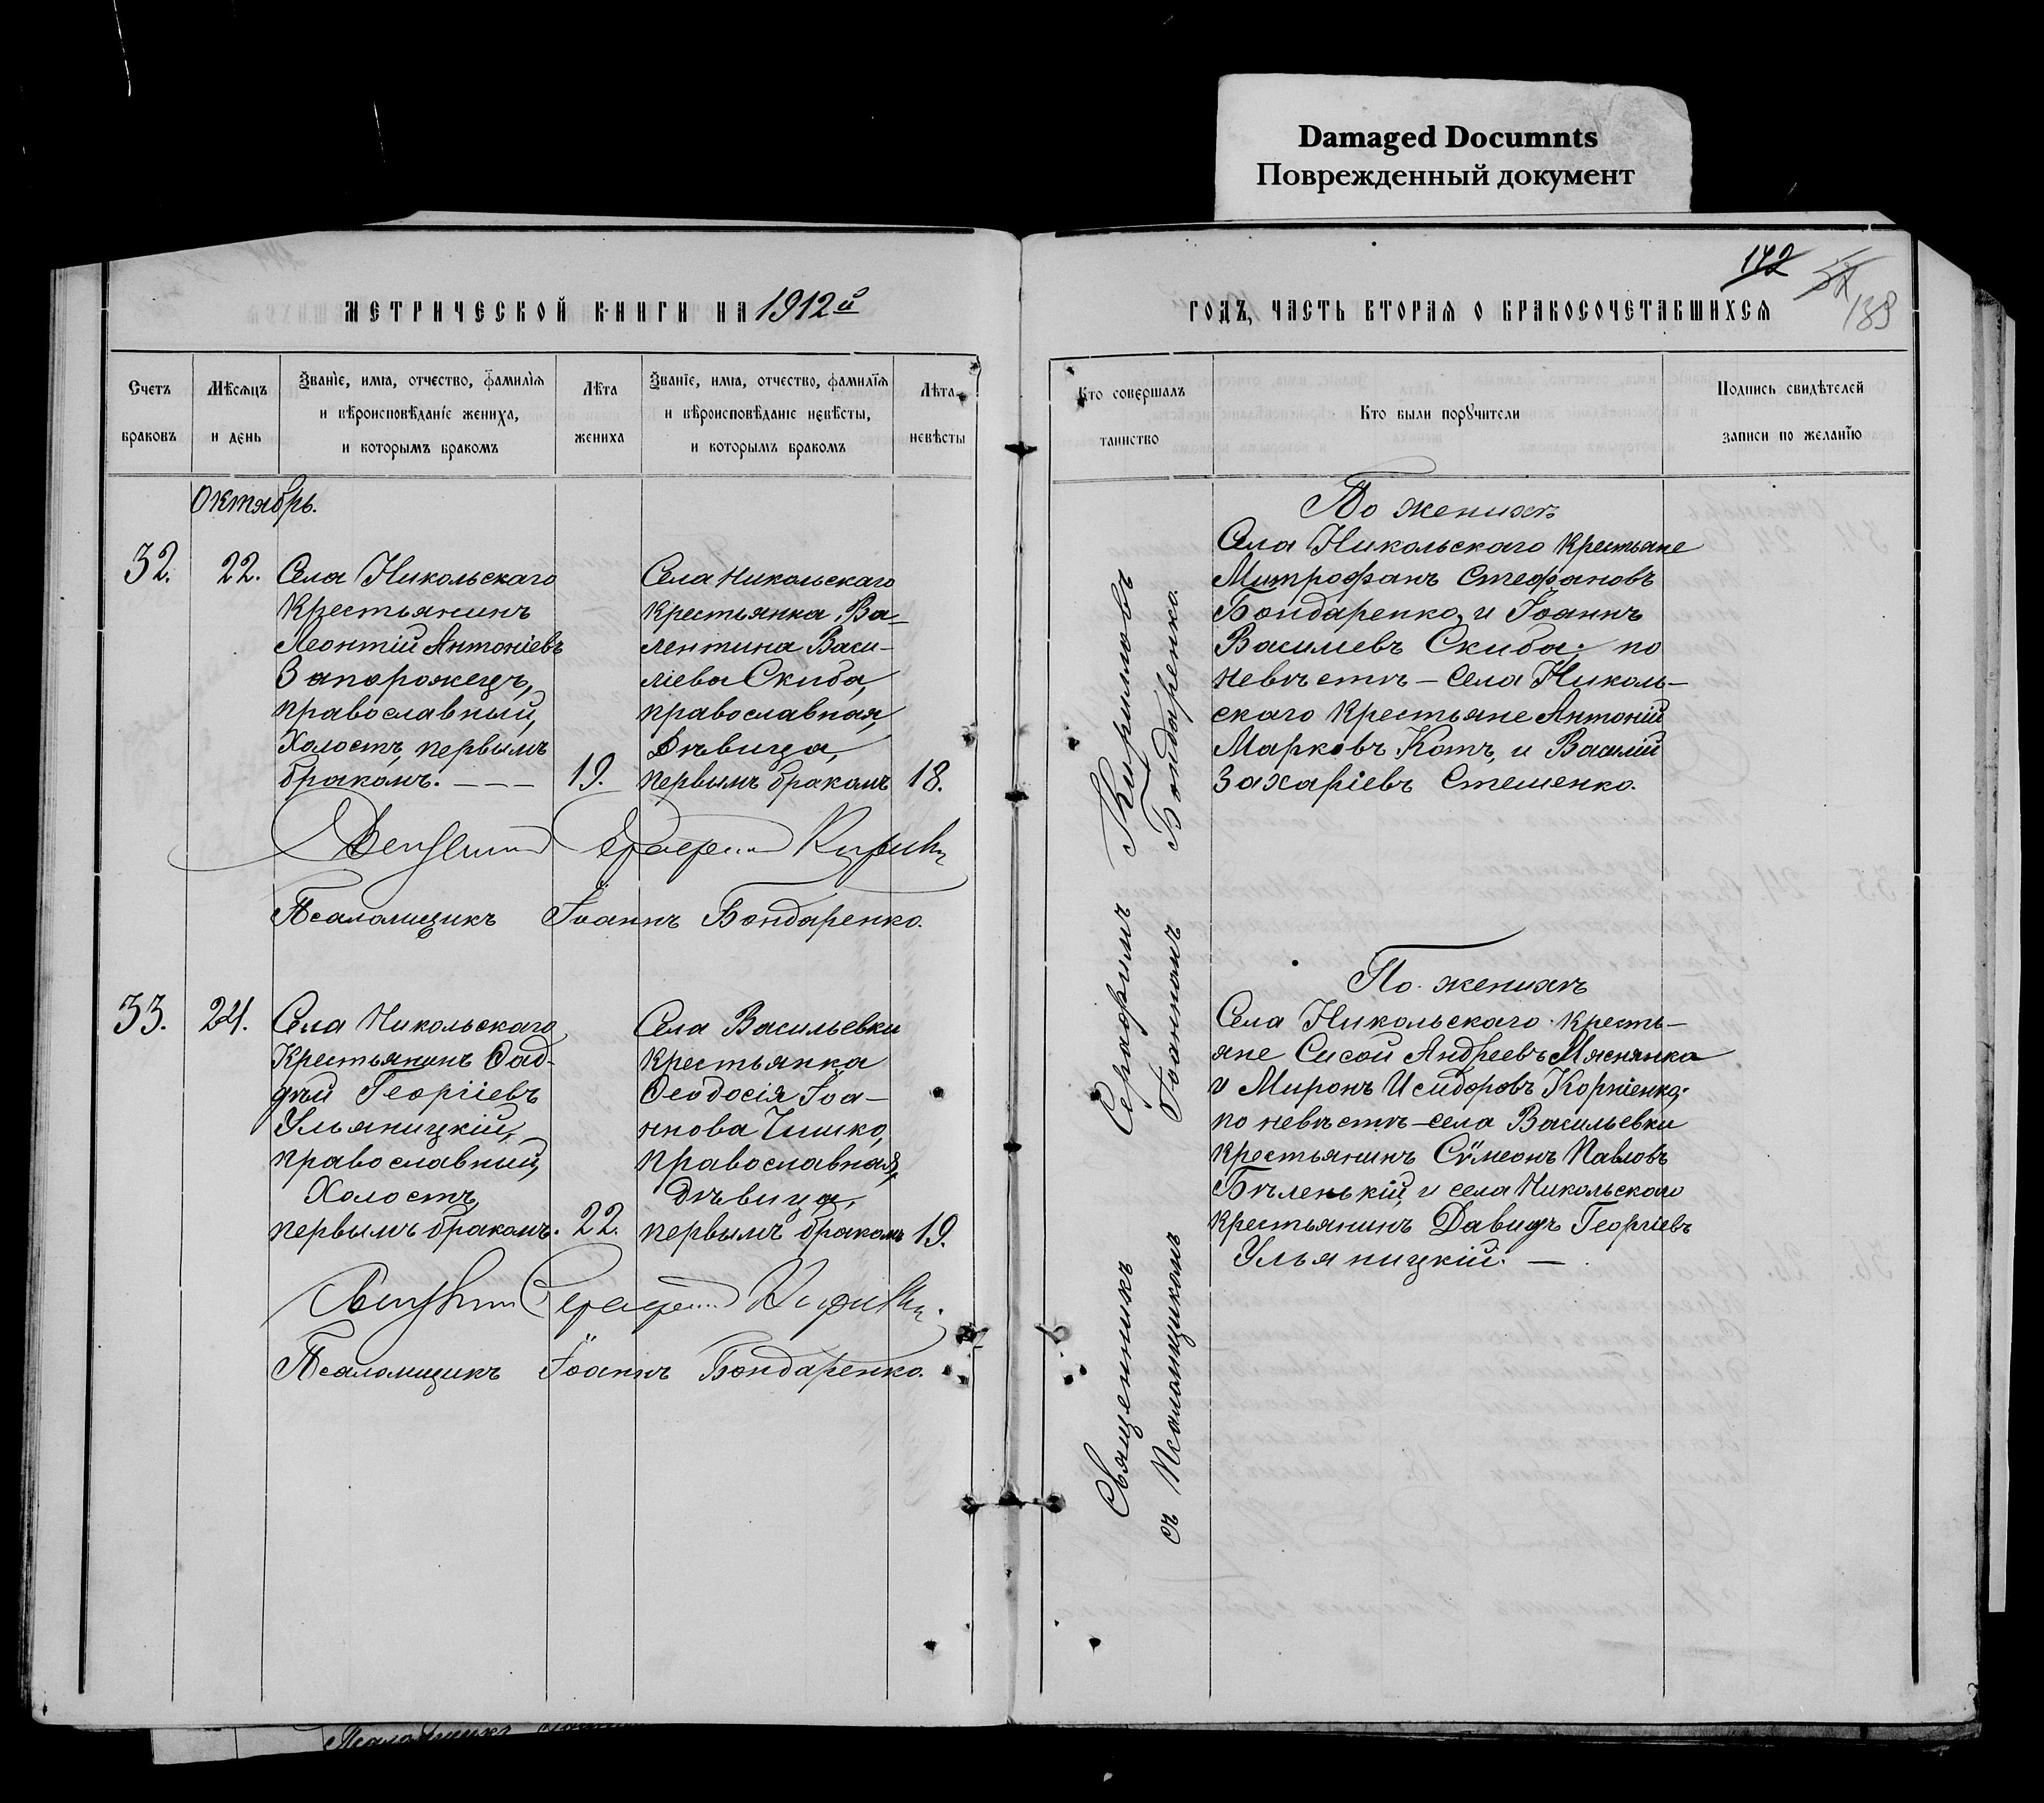 Damaged Documnts
Поврежденный документ
142
189
МЕТРИЧЕСКОЙ КНИГИ НА 1912й
ГОДЪ, ЧАСТЬ ВТОРАЯ О БРАКОСОЧЕТАВШИХСЯ
Счетъ браковъ
Мѣсяцъ и день
Званіе, имя, отчество, фамилія
и вѣроисповѣданіе жениха,
и которымъ бракомъ
Лѣта жениха
Званіе, имя, отчество, фамилія
и вѣроисповѣданіе невѣсты,
и которымъ бракомъ
Лѣта невѣсты
Кто совершалъ таинство
Кто были поручители
Подпись свидѣтелей
записи по желанію
Октябрь.
32.
22.
Села Никольскаго
крестьянинъ
Леонтій Антоніевъ
Запорожецъ,
православный,
холостъ, первымъ
бракомъ. – – –
19.
Села Никольскаго
крестьянка Ва-
лентина Васи-
ліева Скиба,
православная,
дѣвица,
первымъ бракомъ
18.
Священникъ Серафимъ Кириловъ
Псаломщикъ Іоаннъ Бондаренко.
33.
24.
Села Никольскаго
крестьянинъ Фад-
дѣй Георгіевъ
Ульяницкій,
православный,
холостъ,
первымъ бракомъ.
22.
Села Васильевки
крестьянка
Феодосія Іоа-
ннова Чишко,
православная,
дѣвица,
первымъ бракомъ
19.
Священникъ Серафимъ Кириловъ.
Псаломщикъ Іоаннъ Бондаренко.
Священникъ Серафимъ Кириловъ
съ Псаломщикомъ Іоанномъ Бондаренко.
По женихѣ
Села Никольскаго крестьяне
Митрофанъ Стефановъ
Бондаренко, и Іоаннъ
Василіевъ Скиба; по
невѣстѣ – села Николь-
скаго крестьяне Антоній
Марковъ Котъ, и Василій
Захаріевъ Стешенко.
По женихѣ
Села Никольскаго кресть-
яне Сисой Андреевъ Мяснянко
и Миронъ Исидоровъ Корніенко;
по невѣстѣ – села Васильевки
крестьянинъ Сѵмеонъ Павловъ
Бѣленькій, и села Никольскаго
крестьянинъ Давидъ Георгіевъ
Ульяницкій. –
Псаломщикъ